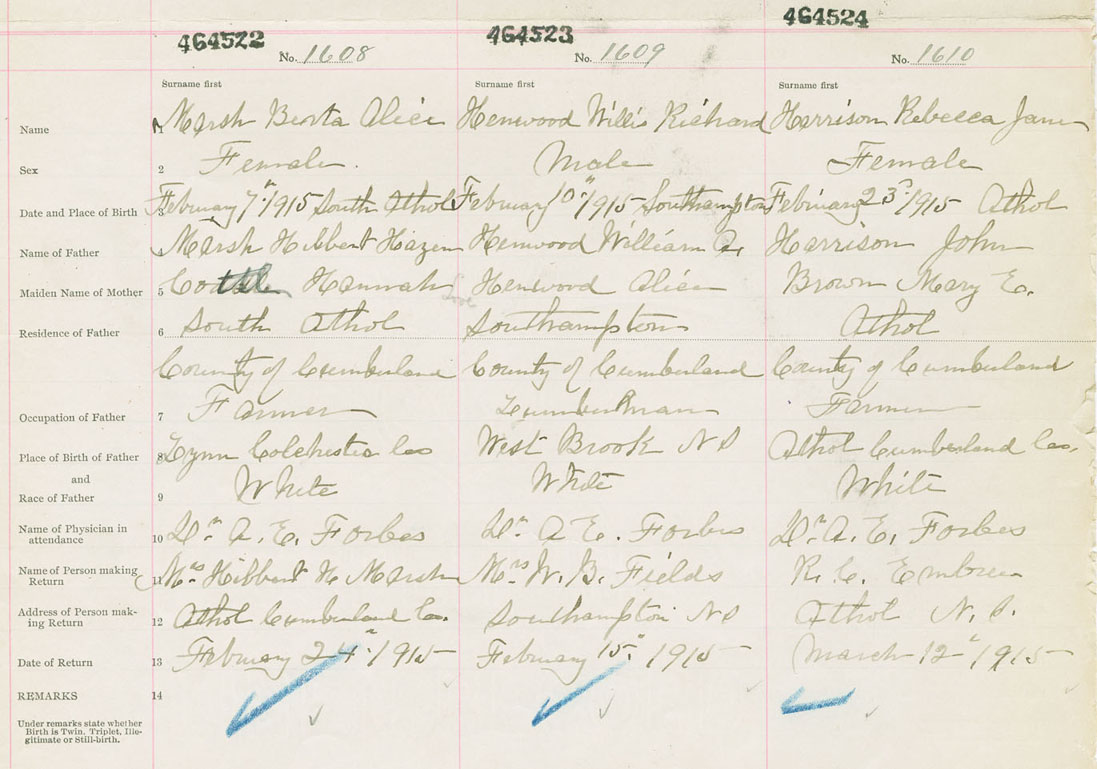 464522 464523 464524
No. 1608 No. 1609 No. 1610
Surname first Surname first Surname first
Name 1 Marsh Berta Alice Henwood Willis Richard Harrison Rebecca Jane
Sex 2 Female Male Female
Date and Place of Birth 3 February 7th 1915 South Athol February 10th 1915 Southampton February 23rd 1915 Athol
Name of Father Marsh Hibbert Hazen Henwood William A. Harrison John
Maiden Name of Mother 5 Hannah Henwood Alice Brown Mary E.
Residence of Father 6 South Athol Southampton Athol
County of Cumberland County of Cumberland County of Cumberland
Occupation of Father 7 Farmer Lumberman Farmer
Place of Birth of Father 8 Lynn Colchester Co West Brook N S Athol Cumberland Co.
and
Race of Father 9 White White White
Name of Physician in
attendance 10 Dr. A. E. Forbes Dr. A E. Forbes Dr. A. E. Forbes
Name of Person making
Return 11 Mrs Hibbert H. Marsh Mrs W. B. Fields R. C. Embree
Address of Person mak-
ing Return 12 Athol Cumberland Co. Southampton N S Athol N. S.
Date of Return 13 February 24th 1915 February 15th 1915 March 12th 1915
REMARKS 14
Under remarks state whether
Birth is Twin, Triplet, Ille-
gitimate or Still-birth.